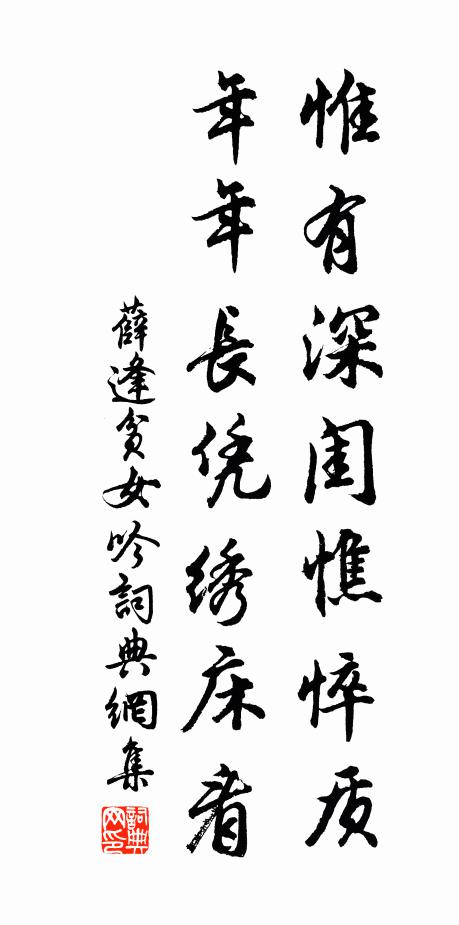 惟有深闺憔悴质
年年長凭绣床看
薛逢贫女吟詞典網集
詞典
网印